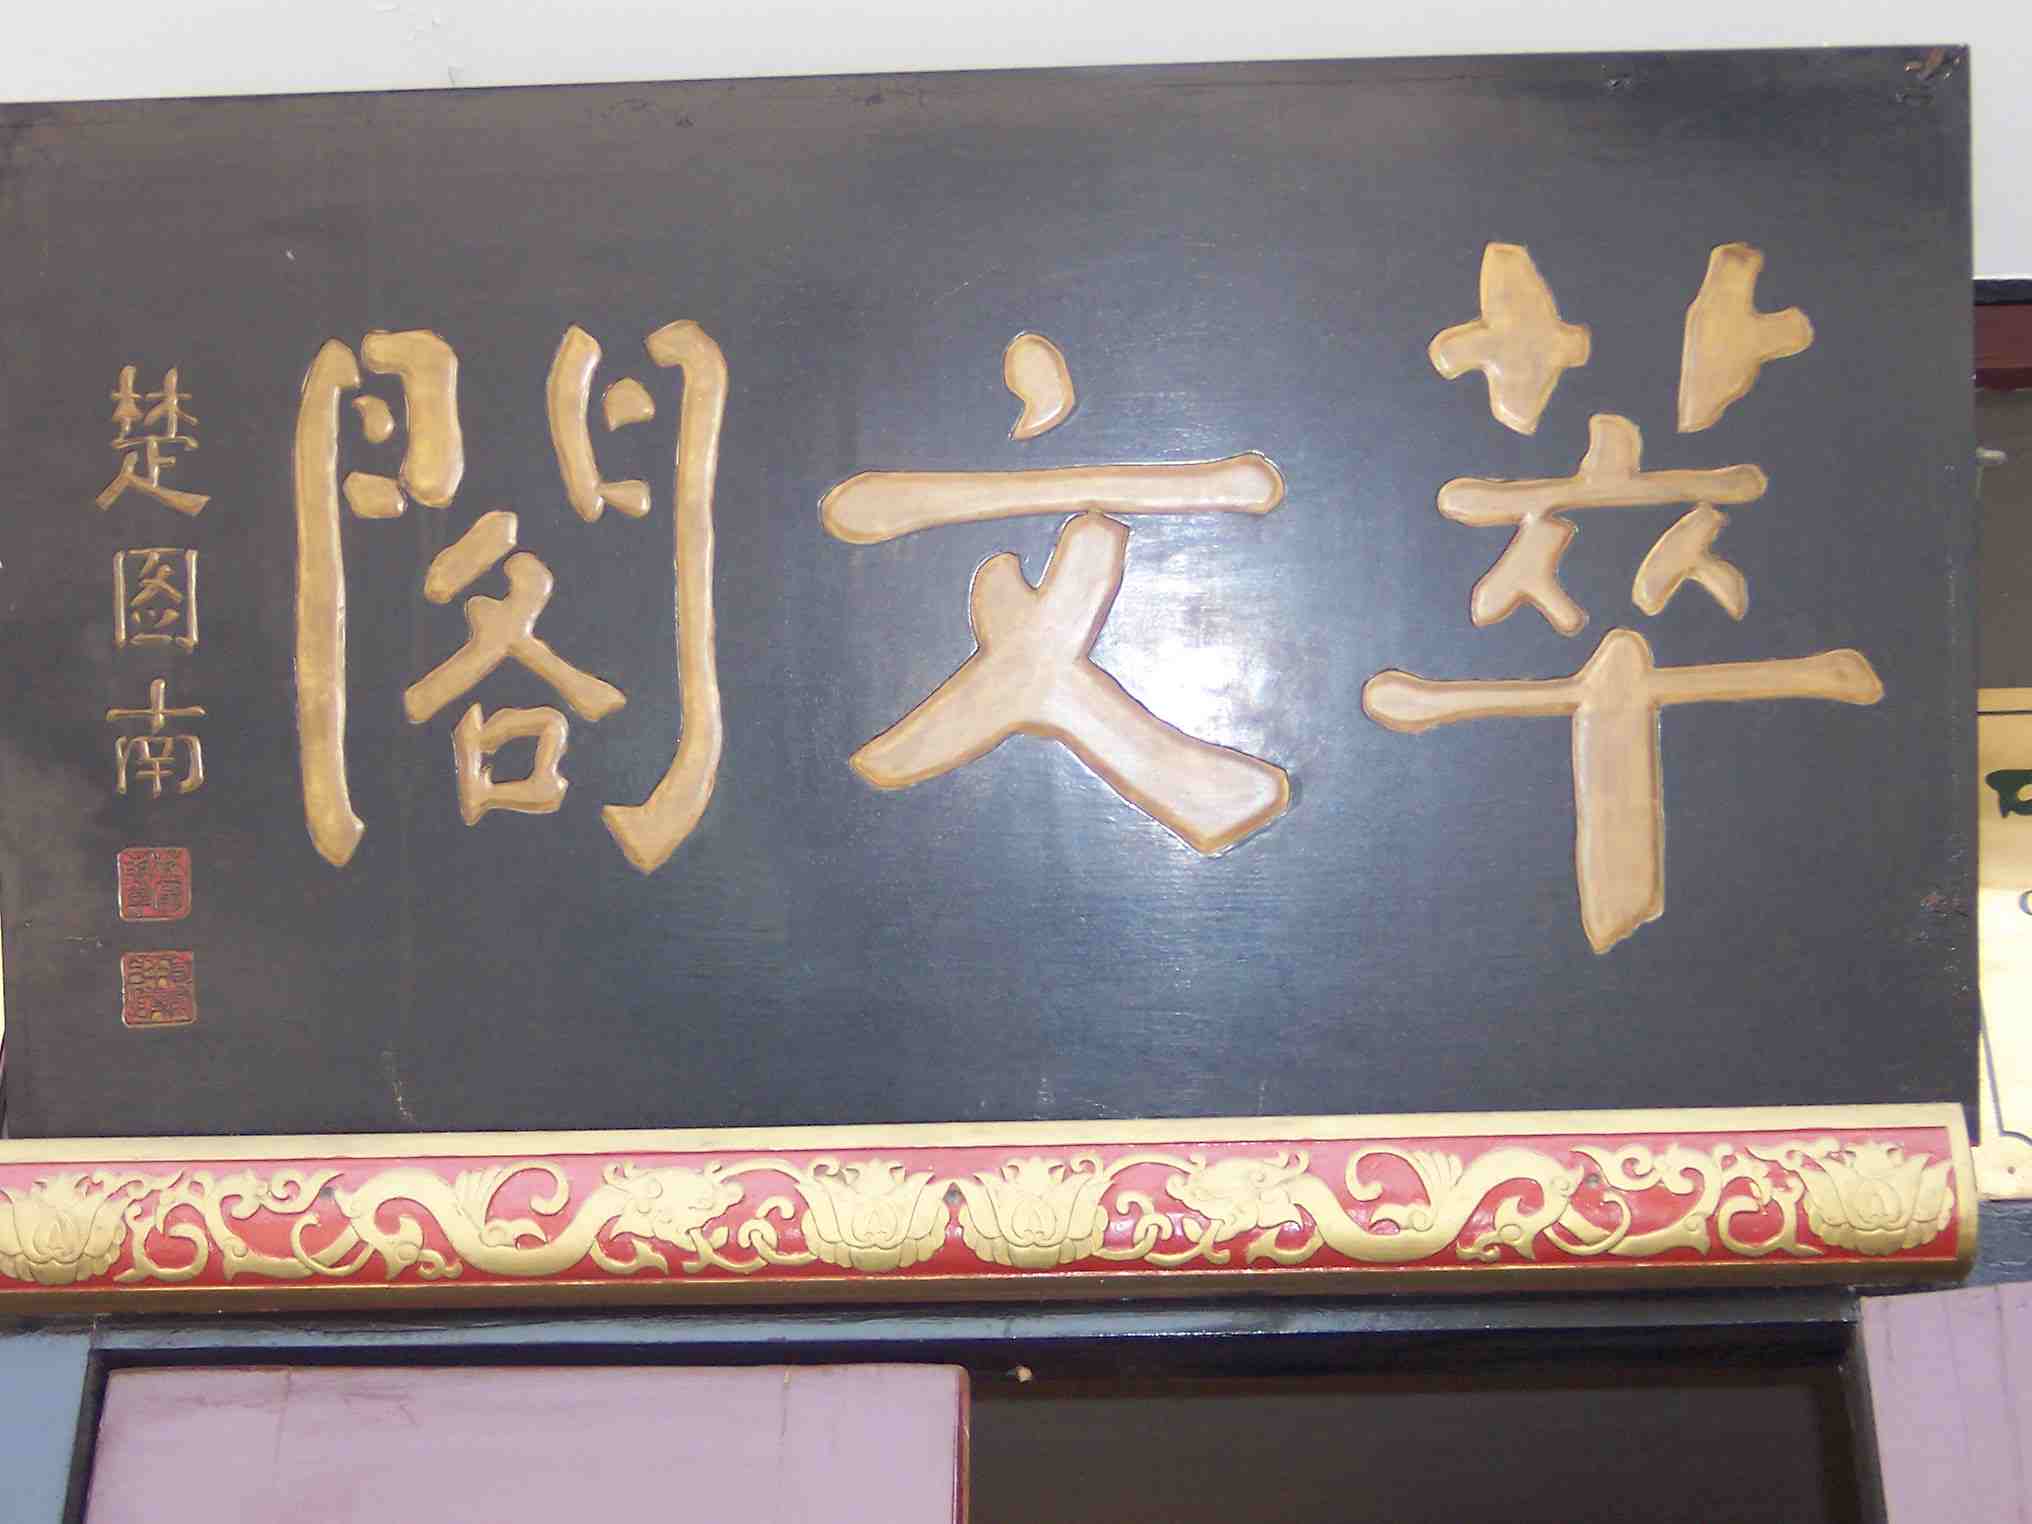 萃文閣
楚图南